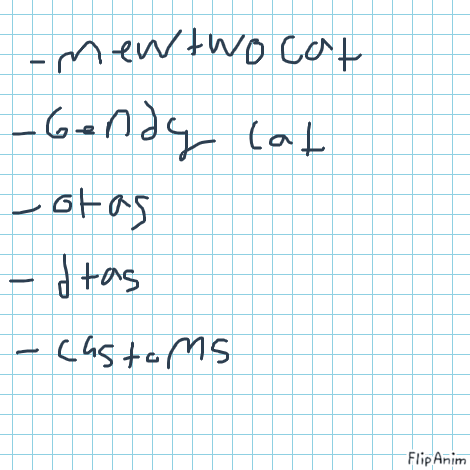 - mewtwo cat
- Gendy cat
- otas
- dtas
- customs
FlipAnim